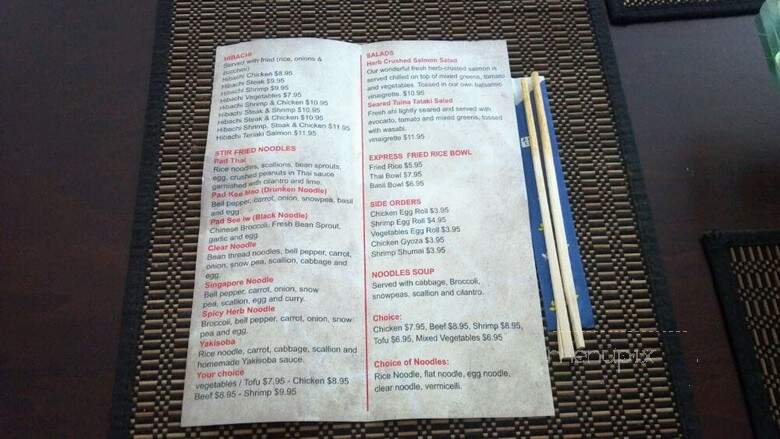 HIBACHI
Served with fried (rice, onions &
zucchini)
Hibachi Chicken $8.95
Hibachi Steak $9.95
Hibachi Shrimp $9.95
Hibachi Vegetables $7.95
Hibachi Shrimp & Chicken $10.95
Hibachi Steak & Shrimp $10.95
Hibachi Steak & Chicken $10.95
Hibachi Shrimp, Steak & Chicken $11.95
Hibachi Teriaki Salmon $11.95
STIR FRIED NOODLES
Pad Thai
Rice noodles, scallions, bean sprouts,
egg, crushed peanuts in Thai sauce
garnished with cilantro and lime.
Pad Kee Mao (Drunken Noodle)
Bell pepper, carrot, onion, snowpea, basil
and egg
Pad See Iw (Black Noodle)
Chinese Broccoli, Fresh Bean Sprout,
garlic and egg.
Clear Noodle
Bean thread noodles, bell pepper, carrot,
onion, snow pea, scallion, cabbage and
egg.
Singapore Noodle
Bell pepper, carrot, onion, snow
pea, scallion, egg and curry.
Spicy Herb Noodle
Broccoli, bell pepper, carrot, onion, snow
pea and egg.
Yakisoba
Rice noodle, carrot, cabbage, scallion and
homemade Yakisoba sauce.
Your choice
vegetables / Tofu $7.95 - Chicken $8.95
Beef $8.95 - Shrimp $9.95
SALADS
Herb Crushed Salmon Salad
Our wonderful fresh herb-crusted salmon is
served chilled on top of mixed greens, tomato
and vegetables. Tossed in our own balsamic
vinaigrette. $10.95
Seared Tuina Tataki Salad
Fresh ahi lightly seared and served with
avocado, tomato and mixed greens, tossed
with wasabi.
vinaigrette $11.95
EXPRESS FRIED RICE BOWL
Fried Rice $5.95
Thai Bowl $7.95
Basil Bowl $6.95
SIDE ORDERS
Chicken Egg Roll $3.95
Shrimp Egg Roll $4.95
Vegetables Egg Roll $3.95
Chicken Gyoza $3.95
Shrimp Shumai $3.95
NOODLES SOUP
Served with cabbage, Broccoli,
snowpeas, scallion and cilantro.
Choice:
Chicken $7.95, Beef $8.95, Shrimp $8.95,
Tofu $6.95, Mixed Vegetables $6.95
Choice of Noodles:
Rice Noodle, flat noodle, egg noodle,
clear noodle, vermicelli.
menupix